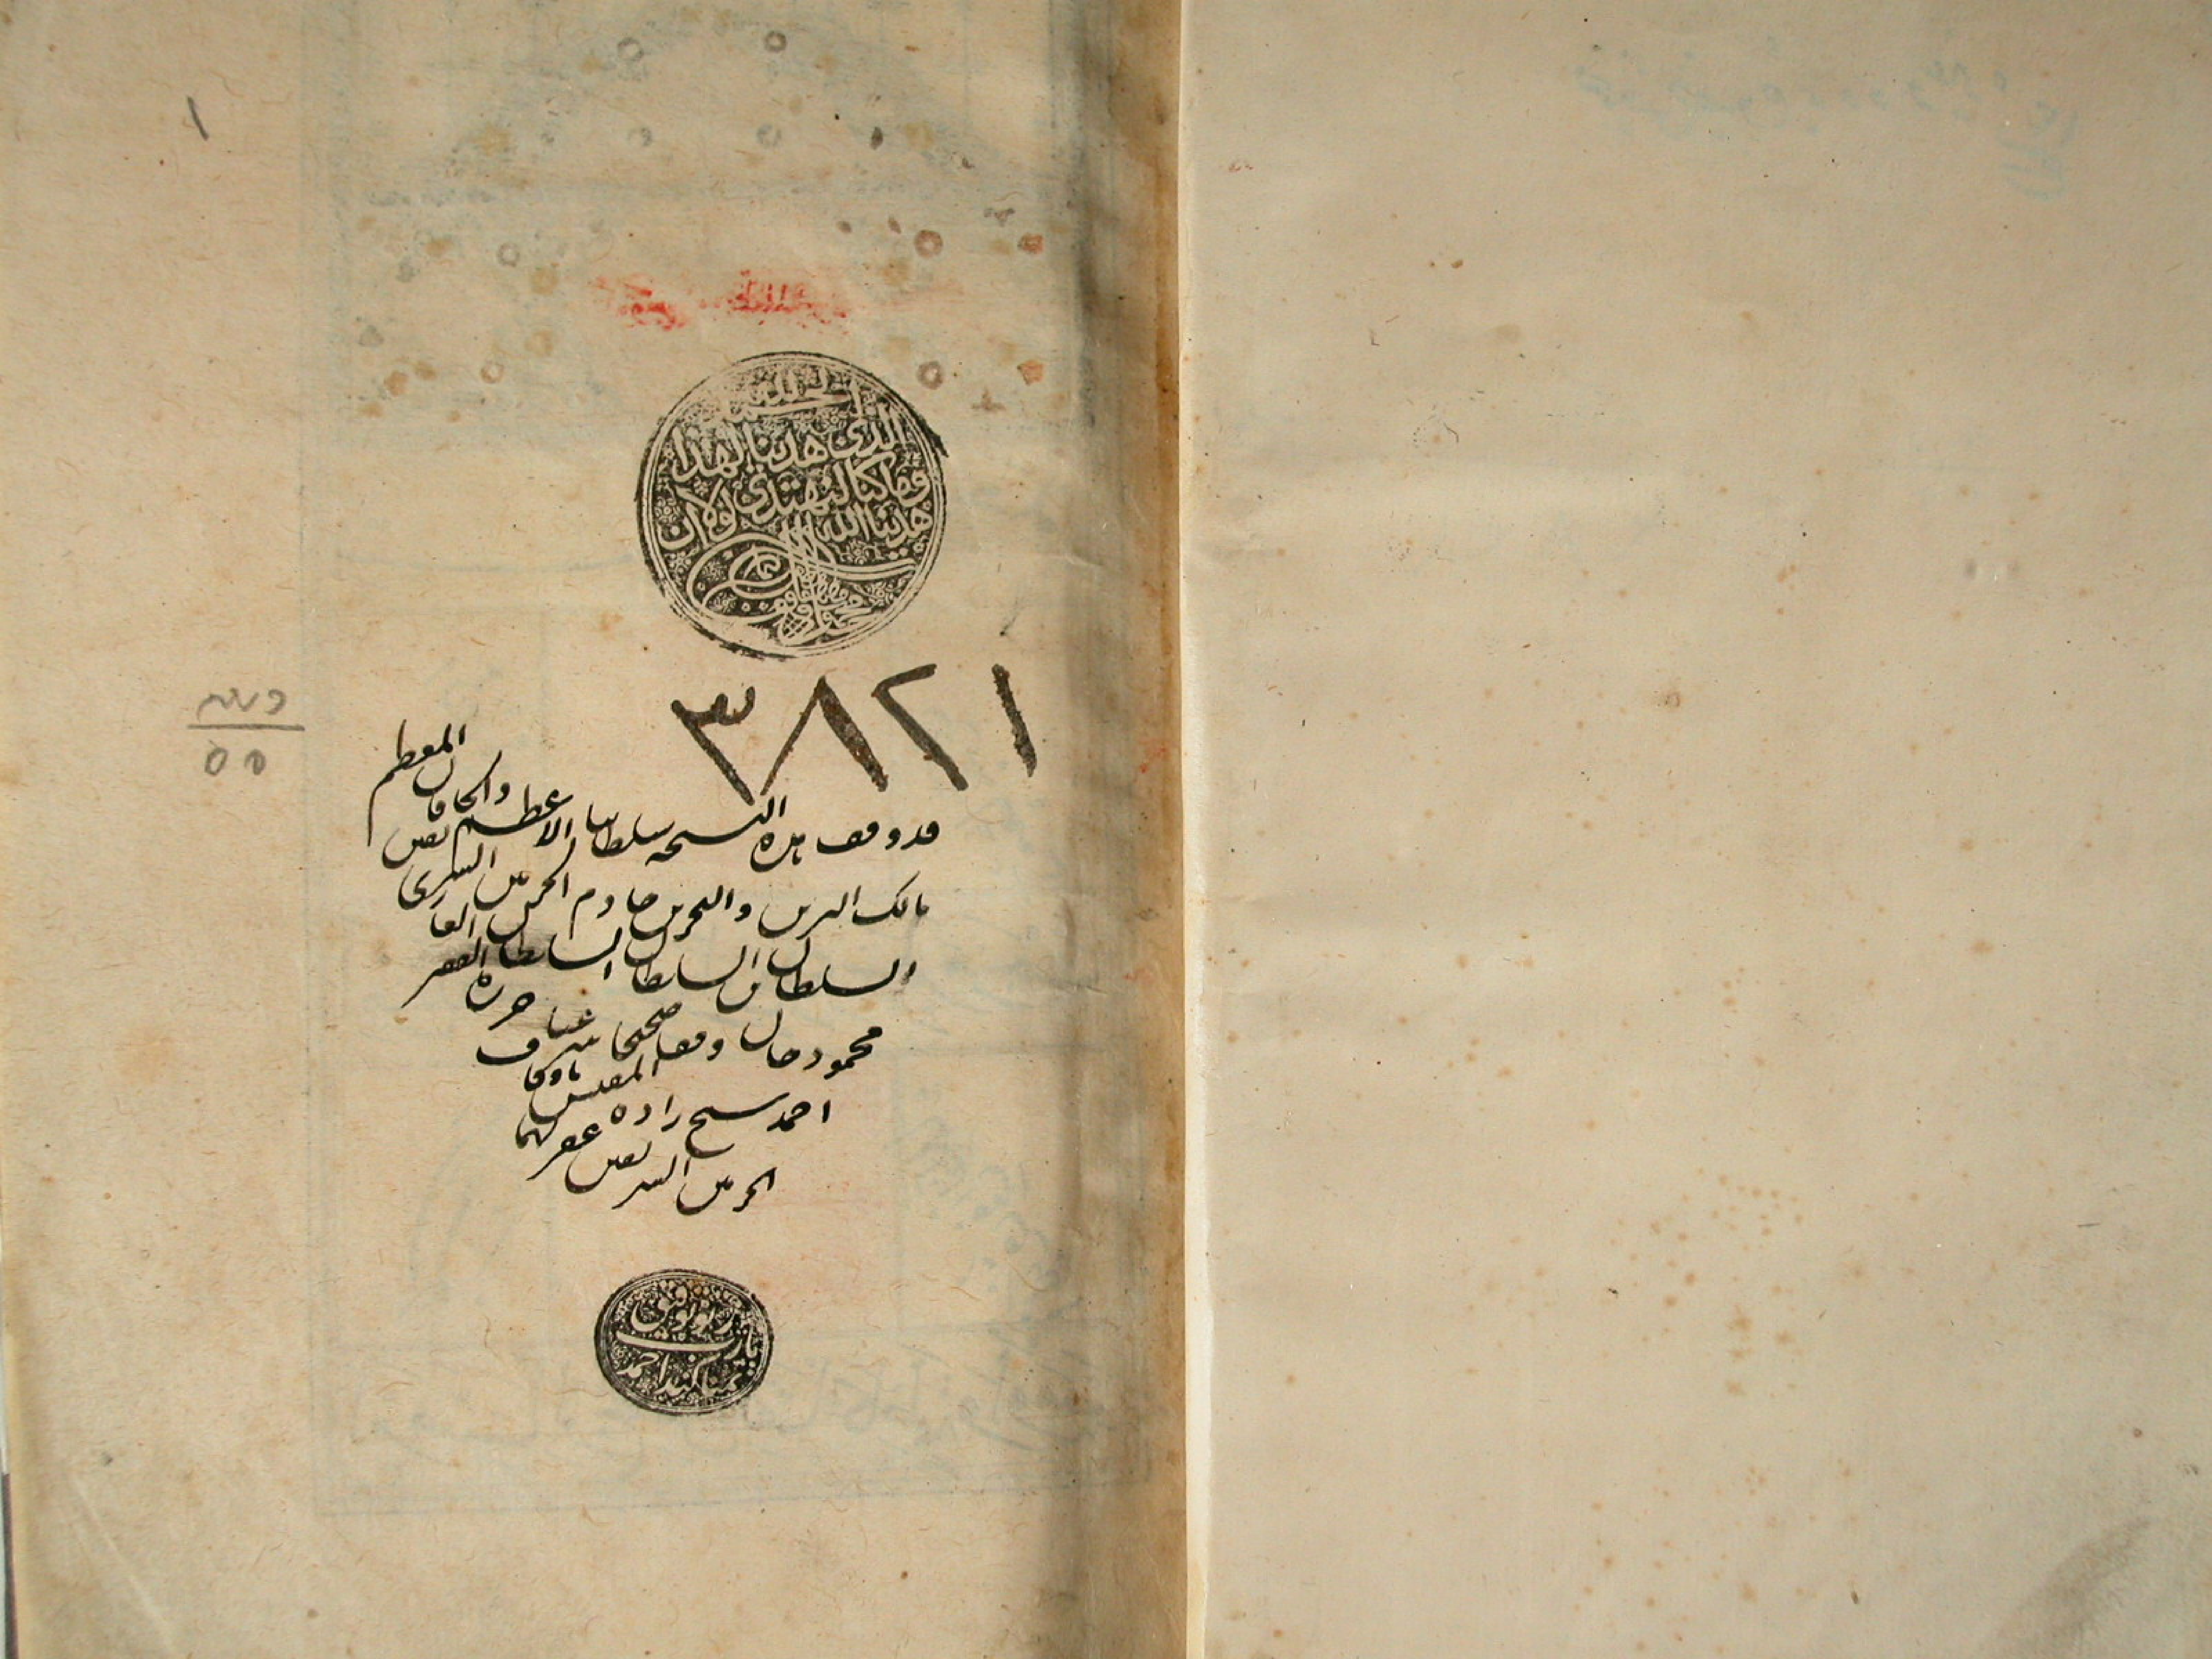 ١
الحمد لله
الذي هدينا لهذا
وما كنا لنهتدي لولا ان
هدينا الله
٣٨٢١
٥٥
قد وقف هذه النسخة سلطاننا الاعظم والخاقان المعظم
مالك البرين والبحرين خادم الحرمين الشريفين
السلطان بن السلطان السلطان الغازى
محمود خان وقفا صحيحا شرعيا حرره الفقير
احمد شيخ زاده المفتش باوقاف
الحرمين الشريفين غفر لهما